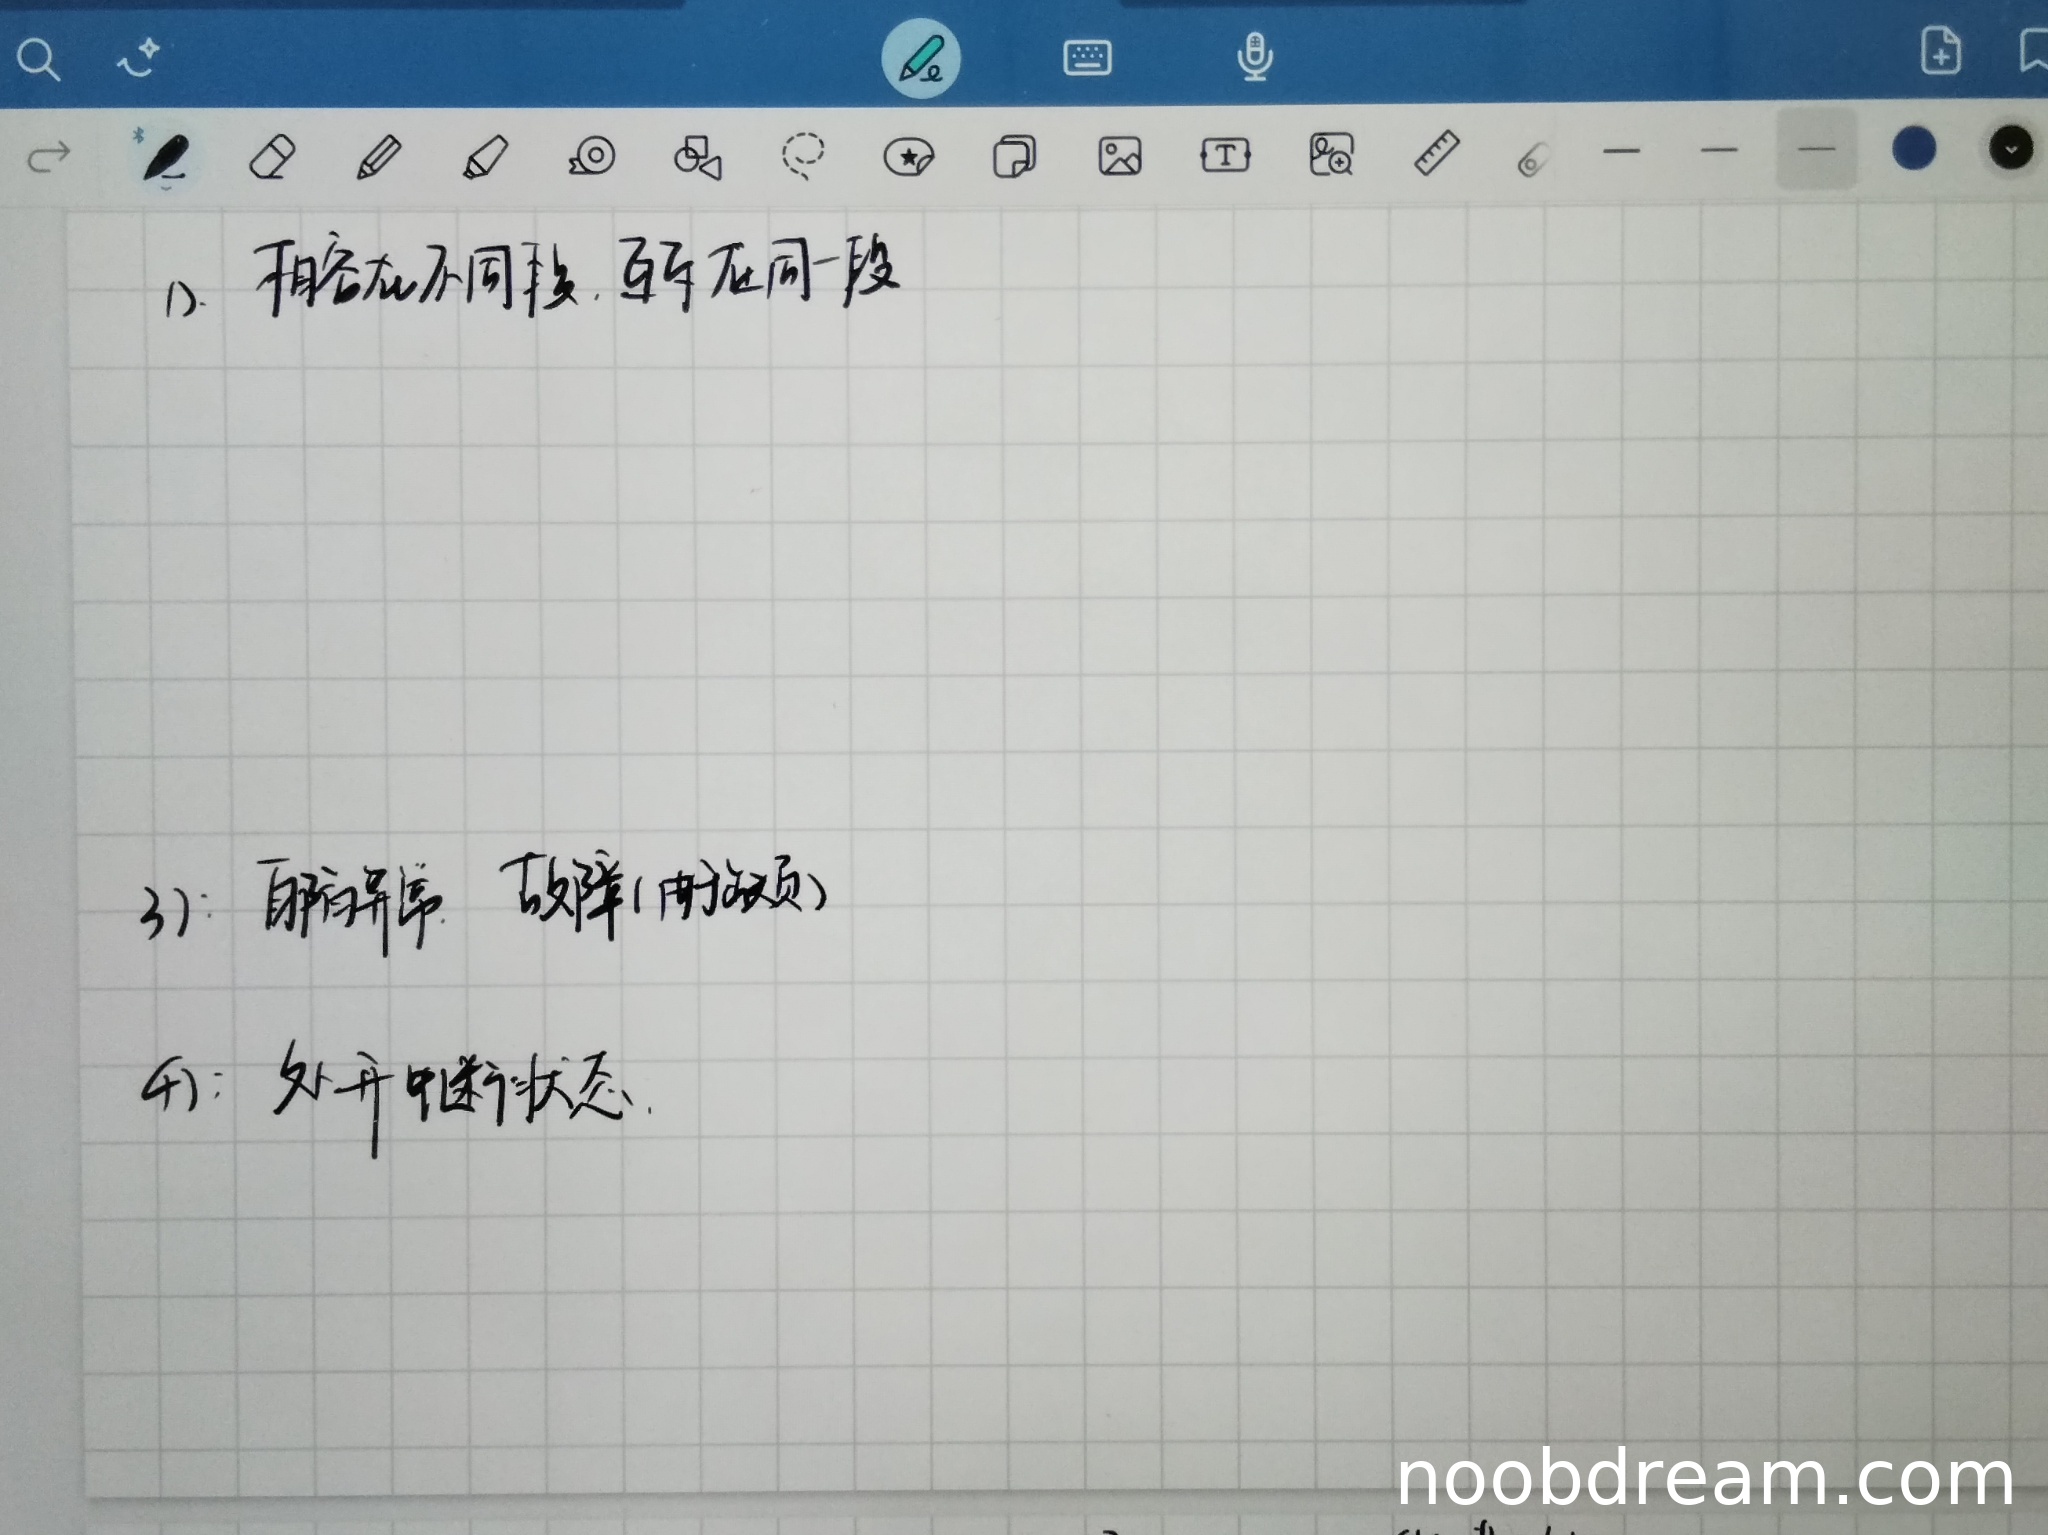 1). 相容在不同段.互斥在同一段
3): 内部异常. 故障(
4): 处开中断状态.
noobdream.com